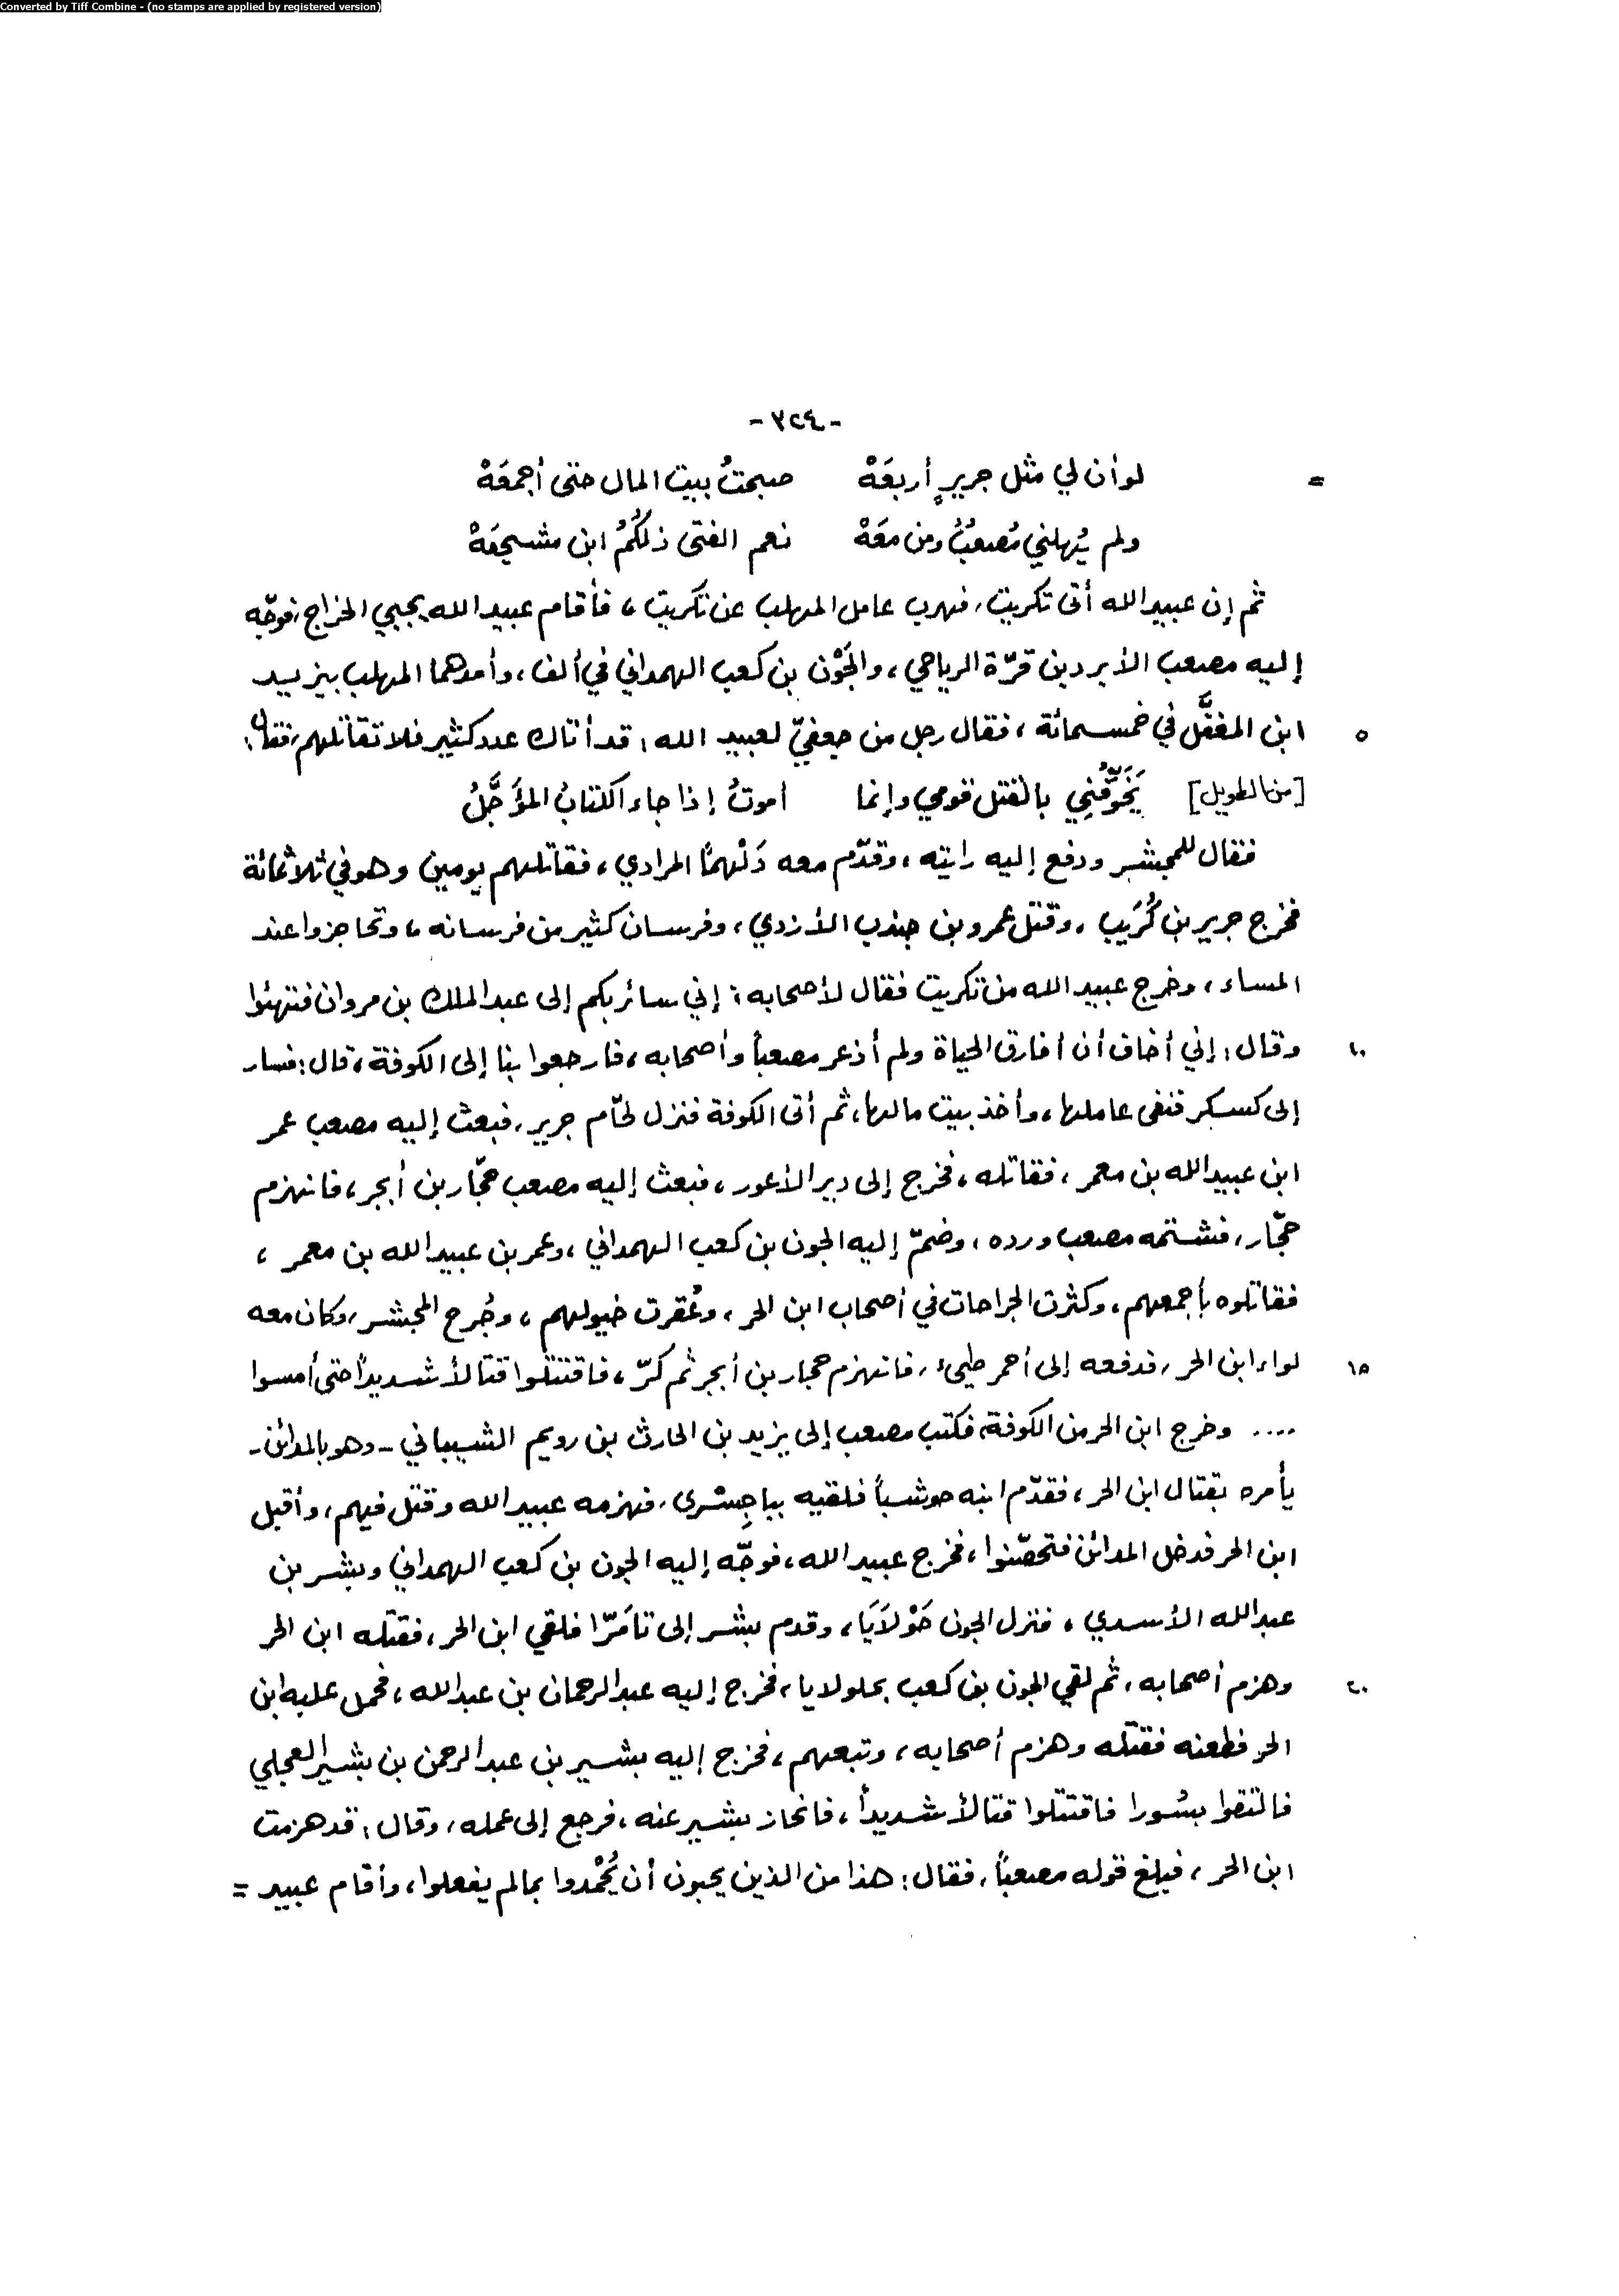 Converted by Tiff Combine - (no stamps are applied by registered version)
-٣٢٤-
= لو أن لي مثل جريرٍ أربعَهْ صبحتُ ببيت المال حتى أجمعَهْ
ولم يُهلني مُصعبٌ ومن معَهْ نعم الفتى ذلكُمُ ابن مشجعَهْ
ثم إن عبيدالله أتى تكريت، فهرب عامل المهلب عن تكريت، فأقام عبيدالله يجبي الخراج، فوجّه
إليه مصعب الأبرد بن قرّة الرياحي، والجَوْن بن كعب الهمداني في ألف، وأمدهما المهلب بيزييد
٥ ابن المغفَّل في خمسمائة، فقال رجل من جعفيّ لعبيد الله: قد أتاك عدد كثير فلا تقاتلهم، فقال:
[من الطويل] يُخَوِّفُنِي بالقتل قومي وإنما أموتُ إذا جاء الكتابُ المؤَجَّلُ
فقال للمجشر ودفع إليه رايته، وقدّم معه دَلْهمًا المرادي، فقاتلهم يومين وهو في ثلاثمائة
فخرج جرير بن كُرَيب، وقتل عمرو بن جندب الأزدي، وفرسان كثير من فرسانه، وتحاجزوا عند
المساء، وخرج عبيدالله من تكريت فقال لأصحابه: إني سائر بكم إلى عبدالملك بن مروان فتهيئوا
١٠ وقال: إني أخاف أن أفارق الحياة ولم أذعر مصعباً وأصحابه، فارجعوا بنا إلى الكوفة، قال: فسار
إلى كسكر فنفى عاملها، وأخذ بيت مالها، ثم أتى الكوفة فنزل لحّام جرير، فبعث إليه مصعب عمر
ابن عبيدالله بن معمر، فقاتله، فخرج إلى دير الأعور، فبعث إليه مصعب حجّار بن أبجر، فانهزم
حجّار، فشتمه مصعب ورده، وضمّ إليه الجون بن كعب الهمداني، وعمر بن عبيدالله بن معمر،
فقاتلوه بأجمعهم، وكثرت الجراحات في أصحاب ابن الحر، وعُقرت خيولهم، وجُرح المجشر، وكان معه
١٥ لواء ابن الحر، فدفعه إلى أحمر طيىء، فانهزم حجار بن أبجر ثم كرّ، فاقتتلوا قتالاً شديداً حتى أمسوا
.... وخرج ابن الحر من الكوفة، فكتب مصعب إلى يزيد بن الحارث بن رويم الشيباني - وهو بالمدائن -
يأمره بقتال ابن الحر، فقدّم ابنه حوشباً فلقيه بباجِسْرى، فهزمه عبيدالله وقتل فيهم، وأقبل
ابن الحر فدخل المدائن فتحصّنوا، فخرج عبيدالله، فوجّه إليه الجون بن كعب الهمداني وبشر بن
عبدالله الأسدي، فنزل الجون حَوْلاَيَا، وقدم بشر إلى تامَرّا فلقي ابن الحر، فقتله ابن الحر
٢٠ وهزم أصحابه، ثم لقي الجون بن كعب بحلولايا، فخرج إليه عبدالرحمان بن عبدالله، فحمل عليه ابن
الحر فطعنه فقتله وهزم أصحابه، وتبعهم، فخرج إليه بشير بن عبدالرحمن بن بشير العجلي
فالتقوا بسُورا فاقتتلوا قتالاً شديداً، فانحاز بشير عنه، فرجع إلى عمله، وقال: قد هزمت
ابن الحر، فبلغ قوله مصعباً، فقال: هذا من الذين يحبون أن يُحْمَدوا بما لم يفعلوا، وأقام عبيد =